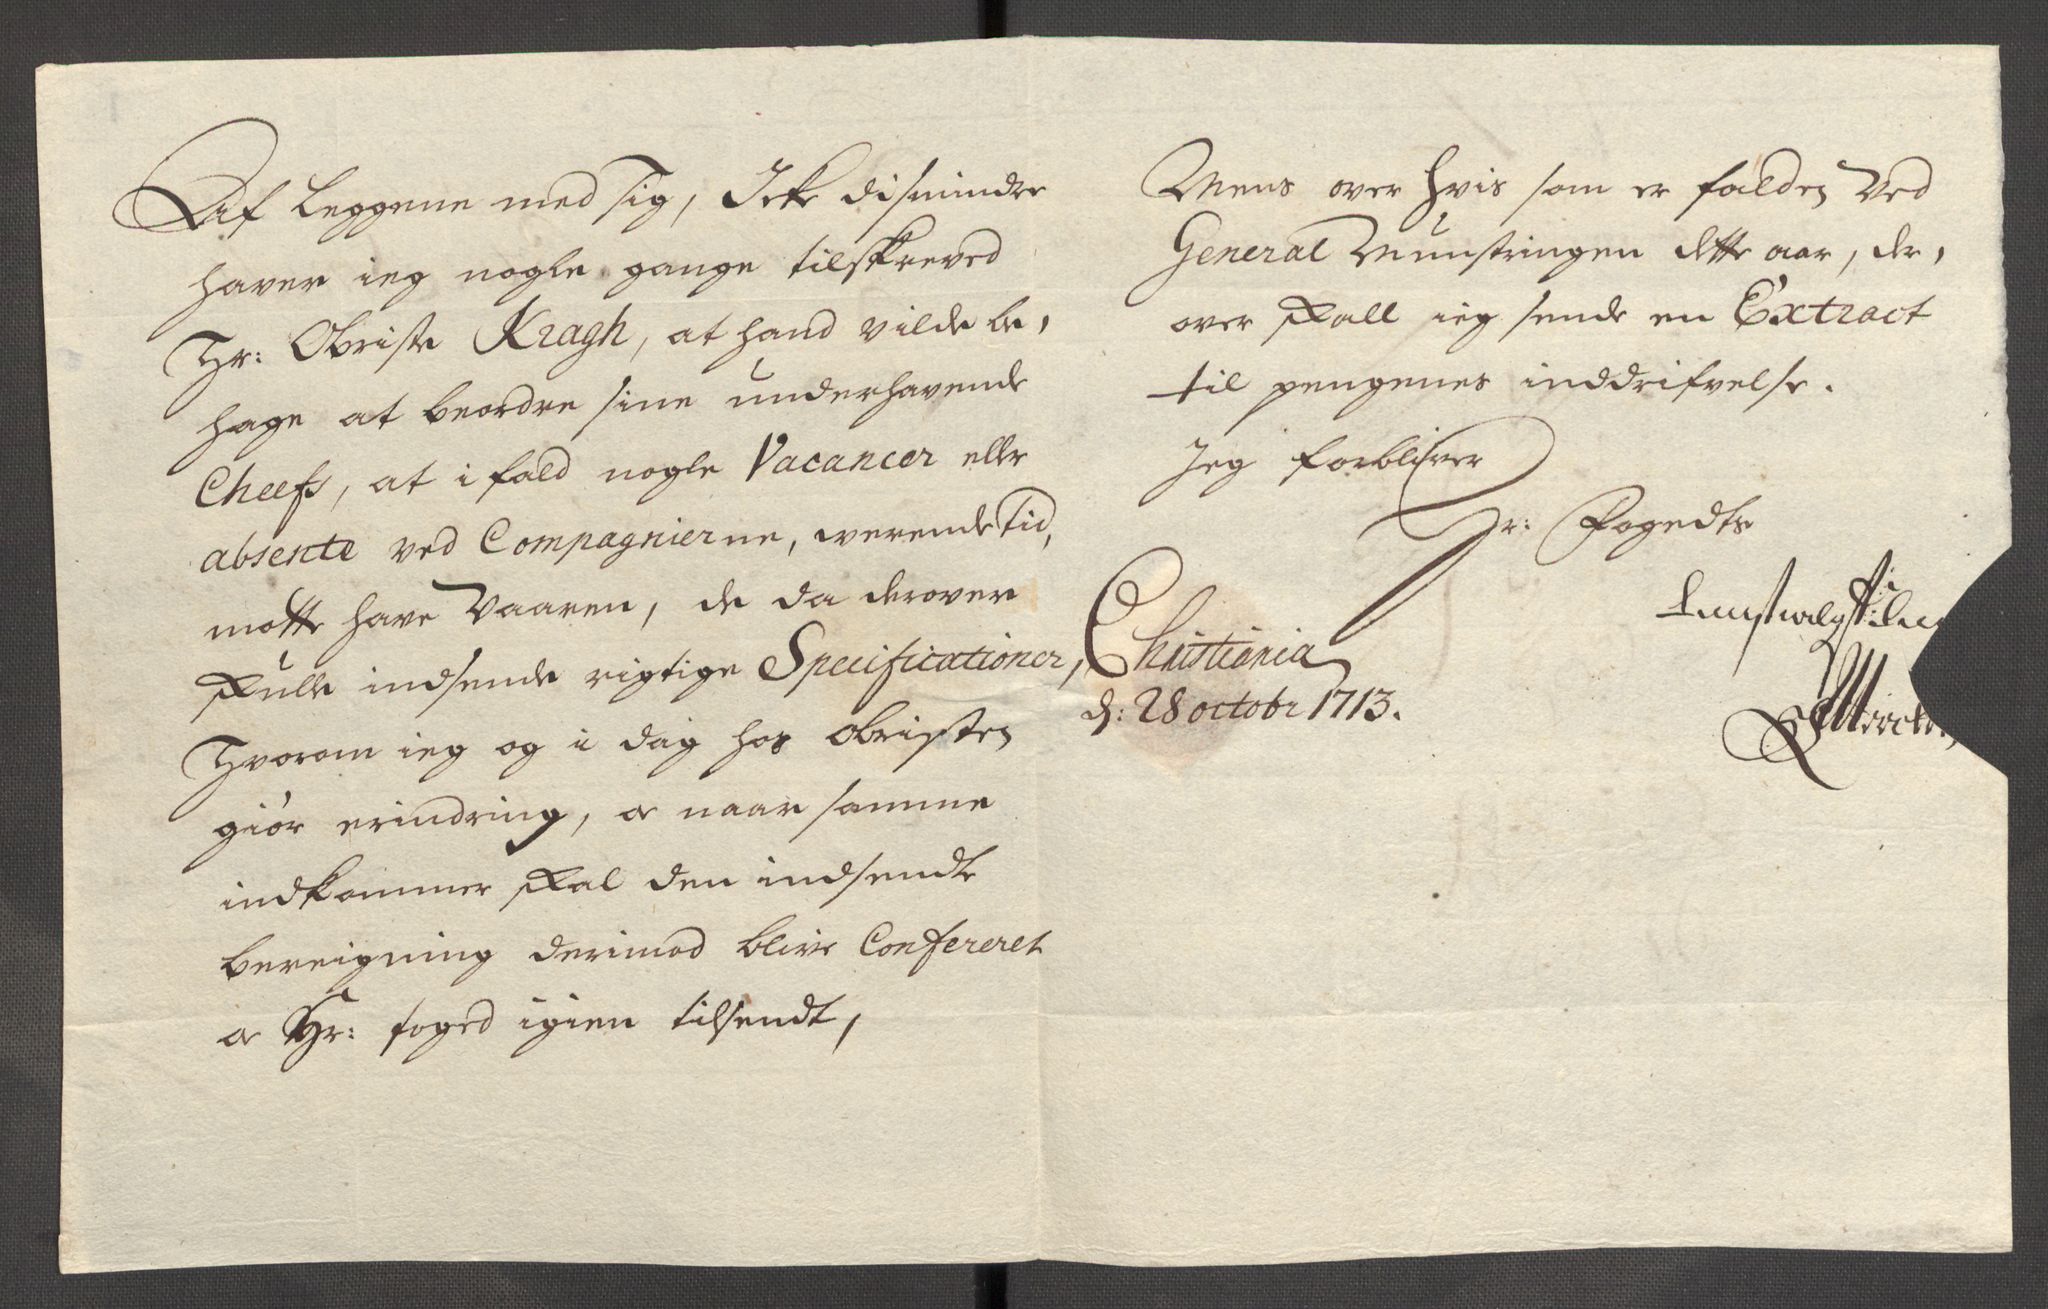 af Leggene med sig, Icke dismindre
haver ieg nogle gange tilskreved
Hr: Obriste Kragh, at hand vilde be,
hage at beordre sine underhavende
Cheefs, at i fald nogle Vacancer eller
absente ved Compagnierne, werende tid,
motte have Vaaren, de da derover
skulle indsende rigtige Specificationer,
Hvorom ieg og i dag hos obristen
giör erindring, og naar samme
indkommer skal den indsendte
bereigning derimod blive Confereret
og Hr: foged igien tilsendt,
Mens over hvis som er falden ved
General Munstringen dette aar, der,
over skall ieg sende en Extract
til pengenes inddrifvelse.
Jeg forbliver
Hr: Fogedts
Christiania
d: 28 octobr 1713.